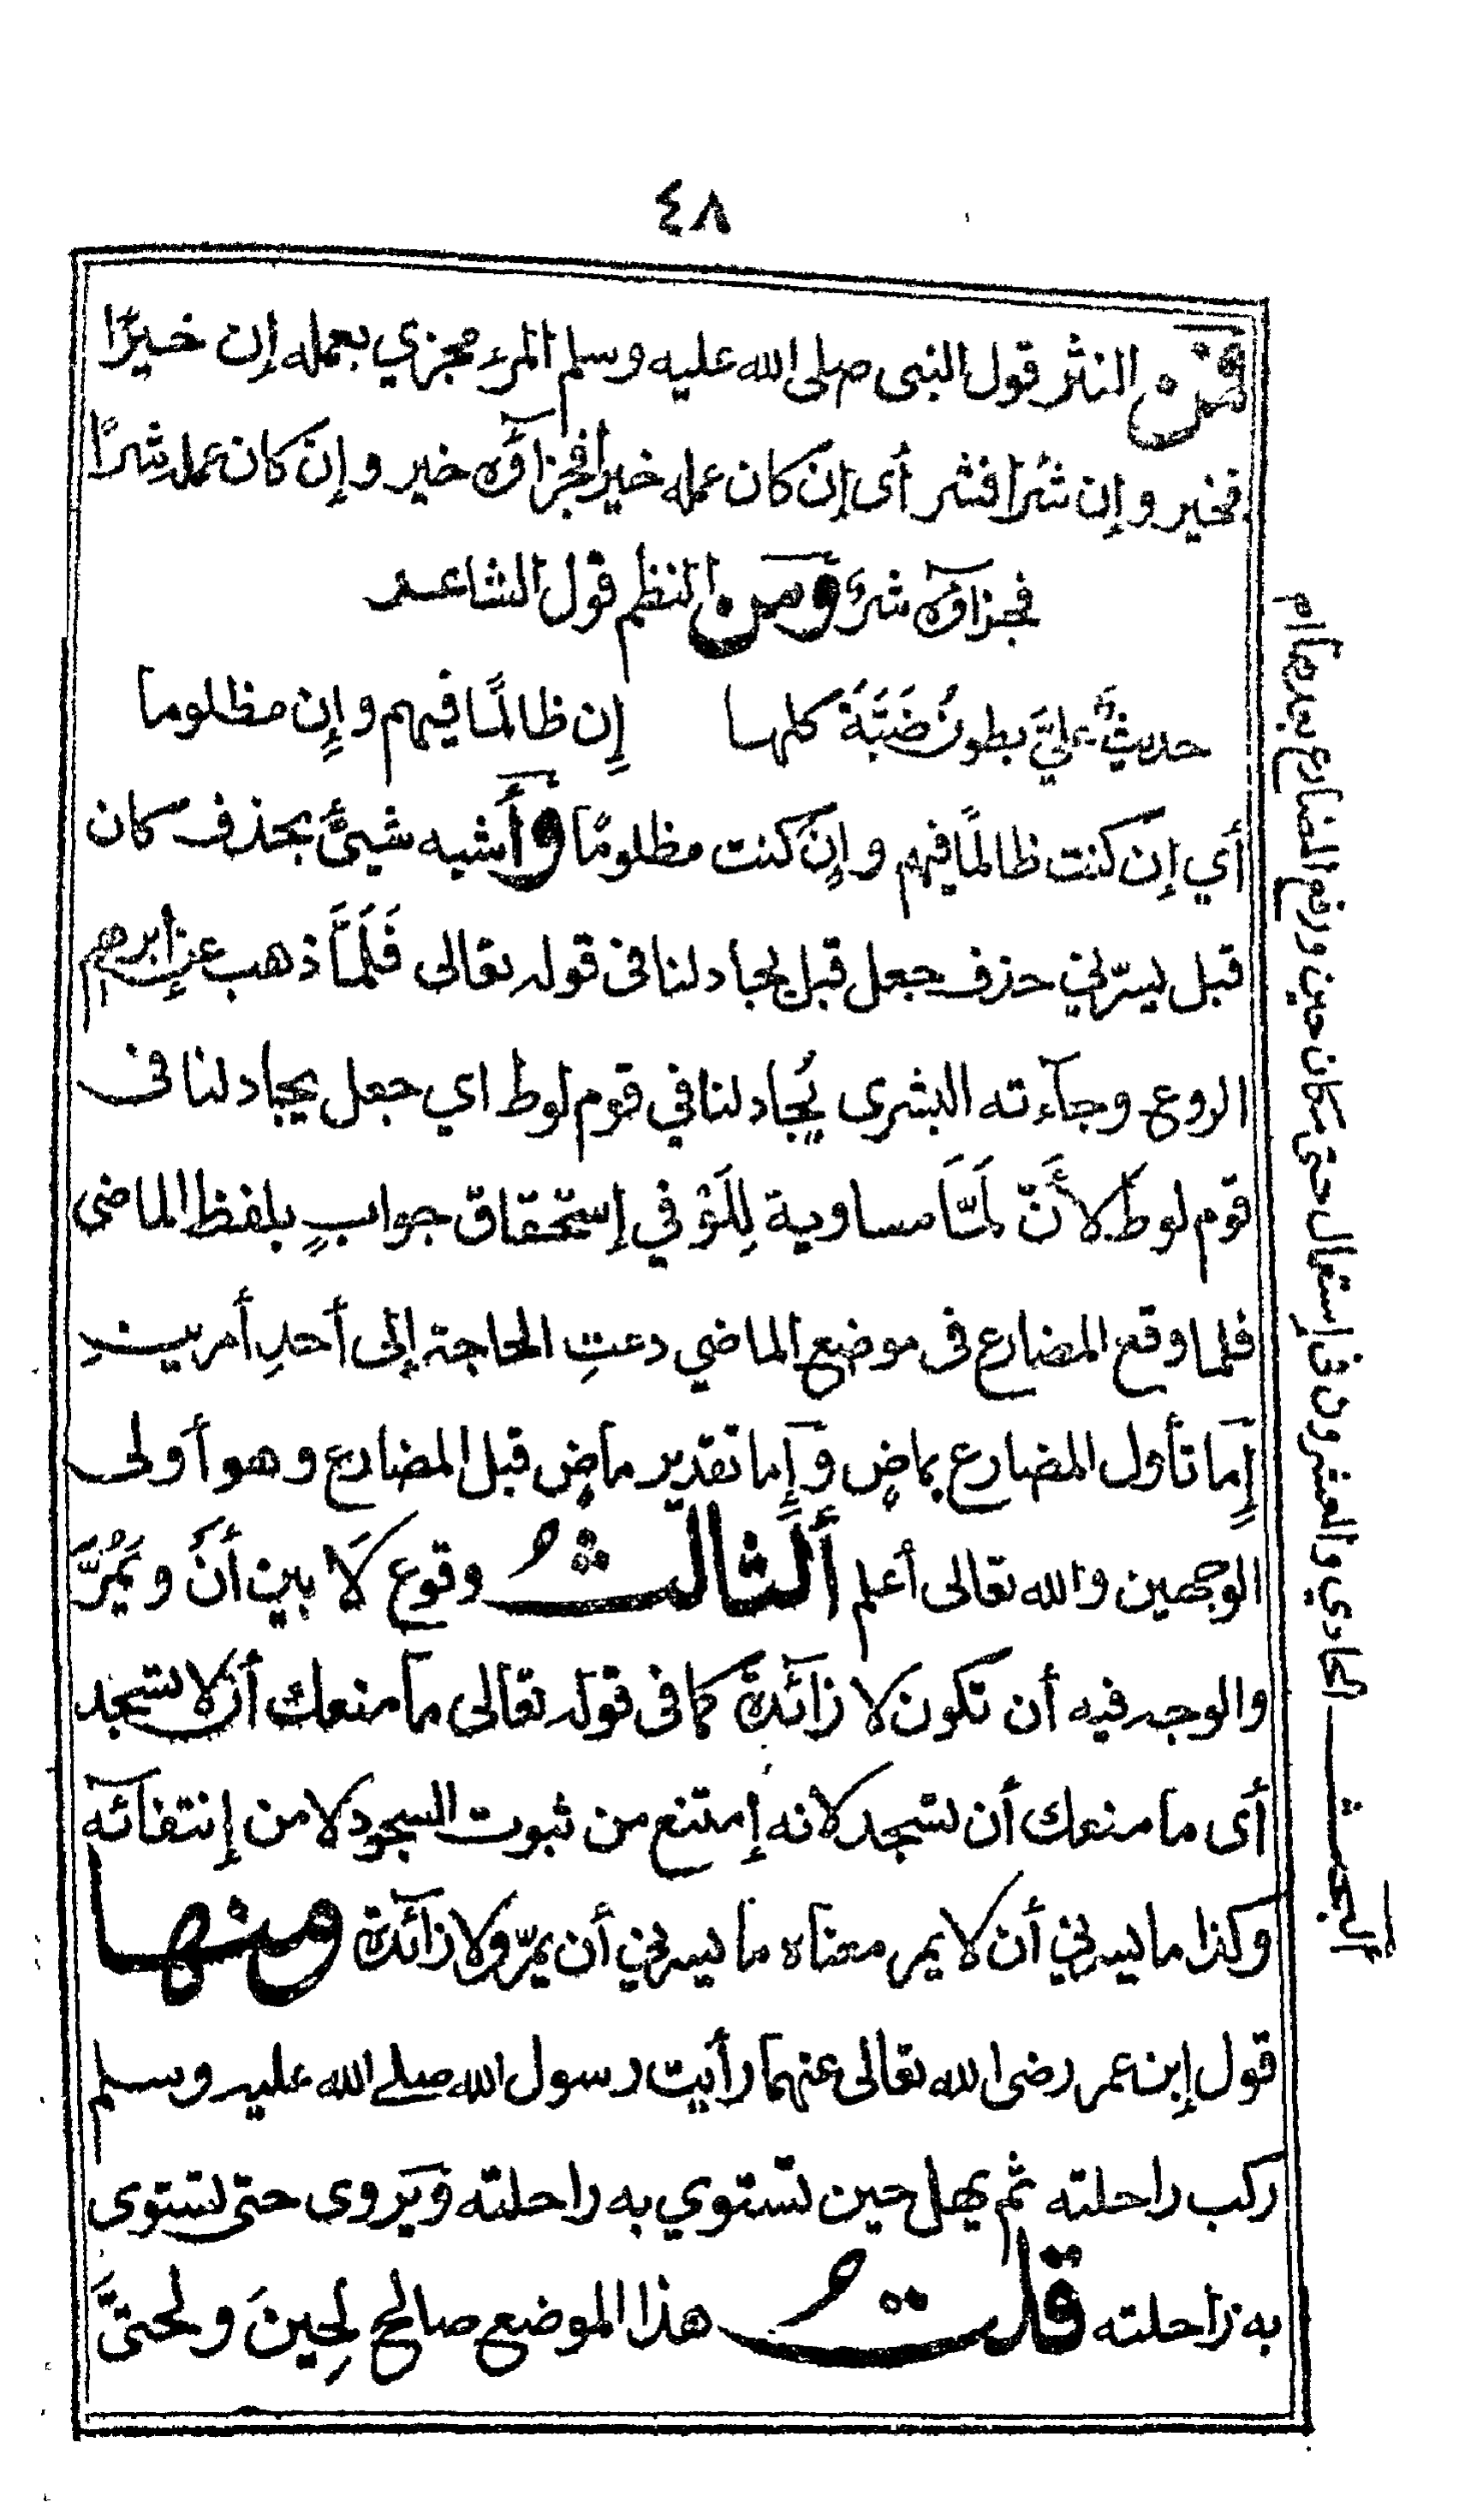 ٤٨
فمن النثر قول النبى صلى الله عليه وسلم المرء مجزي بعمله إن خيرًا
فخير وإن شرا فشر أى إن كان عمله خيرا فجزآؤه خير وإن كان عمله شرًا
فجزاؤه شرء ومن النظم قول الشاعر
حدبت عليّ بطون ضَبَّةَ كلها إن ظالمًا فيهم وإن مظلوما
أي إن كنت ظالمًا فيهم وإن كنت مظلومًا وأشبه شيئٍ بحذف كان
قبل يسرّني حذف جعل قبل يجادلنا فى قوله تعالى فَلَمَّا ذهب عن إبرهيم
الروع وجآءته البشرى يُجادلنا في قوم لوط اي جعل يجادلنا فى
قوم لوط لأنّ لَمَّا مساوية لِلَوْ في إستحقاق جوابٍ بلفظ الماضى
فلما وقع المضارع فى موضع الماضي دعتِ الحاجة إلى أحدِ أمرينِ
إما تأول المضارع بماضٍ وإما تقدير ماضٍ قبل المضارع وهو أولى
الوجهين والله تعالى أعلم ألثالث وقوع لَا بين أنْ ويَمُرَّ
والوجه فيه أن تكون لا زائدة كما فى قوله تعالى ما منعك أن لا تسجد
أى ما منعك أن تسجد لانه إمتنع من ثبوت السجود لا من إنتفائه
وكذا ما يسرني أن لا يمر معناه ما يسرني أن يمرّ ولا زائدة ومنها
قول إبن عمر رضى الله تعالى عنهما رأيت رسول الله صلى الله عليه وسلم
ركب راحلته ثم يهل حين تستوي به راحلته ويَروى حتى تستوى
به راحلته قلت هذا الموضع صالح لِحينَ ولحتىَّ
ألبحث الحادي والعشرون في إستعمال حتى مكان حين ورفع المضارع بعدها م